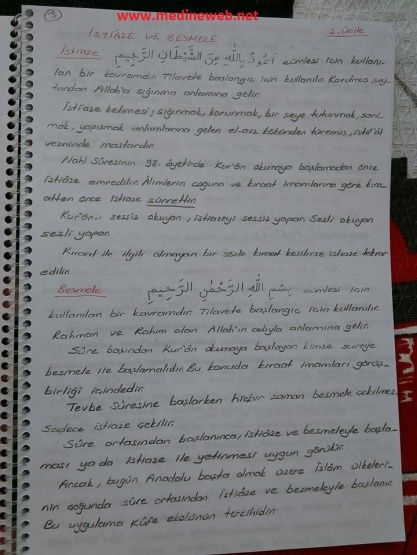 www.medineweb.net
3
İSTİAZE VE BESMELE
2. Ünite
İstiaze أَعُوذُ بِاللّٰهِ مِنَ الشَّيْطَانِ الرَّجِيمِ cümlesi için kullanı-
lan bir kavramdır. Tilavete başlangıç için kullanılır. Kovulmuş şey-
tandan Allah'a sığınma anlamına gelir.
İstiaze kelimesi; sığınmak, korunmak, bir şeye tutunmak, sarıl-
mak, yapışmak anlamlarına gelen el-avz kökünden türemiş, istif'âl
vezninde mastardır.
Nahl Sûresinin 98. âyetinde Kur'ân okumaya başlamadan önce
istiâze emredilir. Âlimlerin çoğuna ve kıraat imamlarına göre kıra-
atten önce istiaze sünnettir.
Kur'ân-ı sessiz okuyan, istiazeyi sessiz yapar. Sesli okuyan
sesli yapar.
Kıraat ile ilgili olmayan bir sözle kıraat kesilirse istiaze tekrar
edilir.
Besmele بِسْمِ اللّٰهِ الرَّحْمٰنِ الرَّحِيمِ cümlesi için
kullanılan bir kavramdır. Tilavete başlangıç için kullanılır.
Rahman ve Rahim olan Allah'ın adıyla anlamına gelir.
Sûre başından Kur'ân okumaya başlayan kimse sureye
besmele ile başlamalıdır. Bu konuda kıraat imamları görüş-
birliği içindedir.
Tevbe Sûresine başlarken hiçbir zaman besmele çekilmez.
Sadece istiaze çekilir.
Sûre ortasından başlanınca, istiâze ve besmeleyle başla-
ması ya da istiaze ile yetinmesi uygun görülür.
Ancak, bugün Anadolu başta olmak üzere İslâm ülkeleri-
nin çoğunda sûre ortasından istiâze ve besmeleyle başlanır.
Bu uygulama Kûfe ekolünün tercihidir.